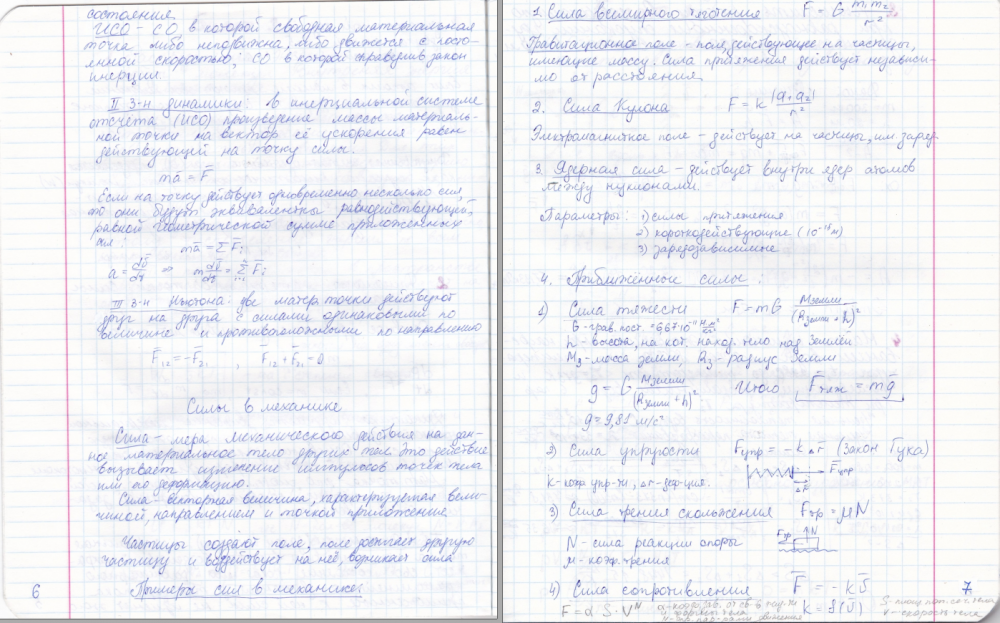 состояния
ИСО - СО, в которой свободная материальная
точка либо неподвижна, либо движется с посто-
янной скоростью; СО в которой справедлив закон
инерции.
II З-н динамики: в инерциальной системе
отсчета (ИСО) произведение массы материаль-
ной точки на вектор её ускорения равен
действующей на точку силы.
ma̅ = F̅
Если на точку действует одновременно несколько сил,
то они будут эквивалентны равнодействующей,
равной геометрической сумме приложенных
сил:
ma̅ = Σ F̅i
a = dv̅/dt ⇒ m dv̅/dt = Σ F̅i
III З-н Ньютона: две матер. точки действуют
друг на друга с силами одинаковыми по
величине и противоположными по направлению
F̅12 = -F̅21 , F̅12 + F̅21 = 0
Силы в механике
Сила - мера механического действия на дан-
ное материальное тело других тел. Это действие
вызывает изменение импульсов точек тела
или его деформацию.
Сила - векторная величина, характеризуется вели-
чиной, направлением и точкой приложения
Частицы создают поле, поле достигает другую
частицу и воздействует на неё, возникает сила
Примеры сил в механике:
6
1. Сила всемирного тяготения F = G m1m2/r²
Гравитационное поле - поле, действующее на частицы,
имеющие массу. Сила притяжения действует независи-
мо от расстояния
2. Сила Кулона F = k |q1q2|/r²
Электромагнитное поле - действует на частицы, им. заряд.
3. Ядерная сила - действует внутри ядер атомов
между нуклонами.
Параметры: 1) силы притяжения
2) короткодействующие (10⁻¹⁵ м)
3) зарядозависимые
4. Приближённые силы:
1) Сила тяжести F = mG Mземли/(Rземли + h)²
G - грав. пост. = 6,67·10⁻¹¹ Н·м²/кг²
h - высота, на кот. наход. тело над Землёй
Mз - масса Земли, Rз - радиус Земли
g = G Mземли/(Rземли + h)² Итого F̅тяж = mg̅
g = 9,81 м/с²
2) Сила упругости F̅упр = -k Δr̅ (Закон Гука)
k - коэф упр-ти, Δr - деф-ция. F̅упр
Δr̅
3) Сила трения скольжения Fтр = μN
N - сила реакции опоры Fтр N
μ - коэф. трения
4) Сила сопротивления F̅ = -kv̅
F = α S · Vᴺ k = f(v)
V - скорость тела
7